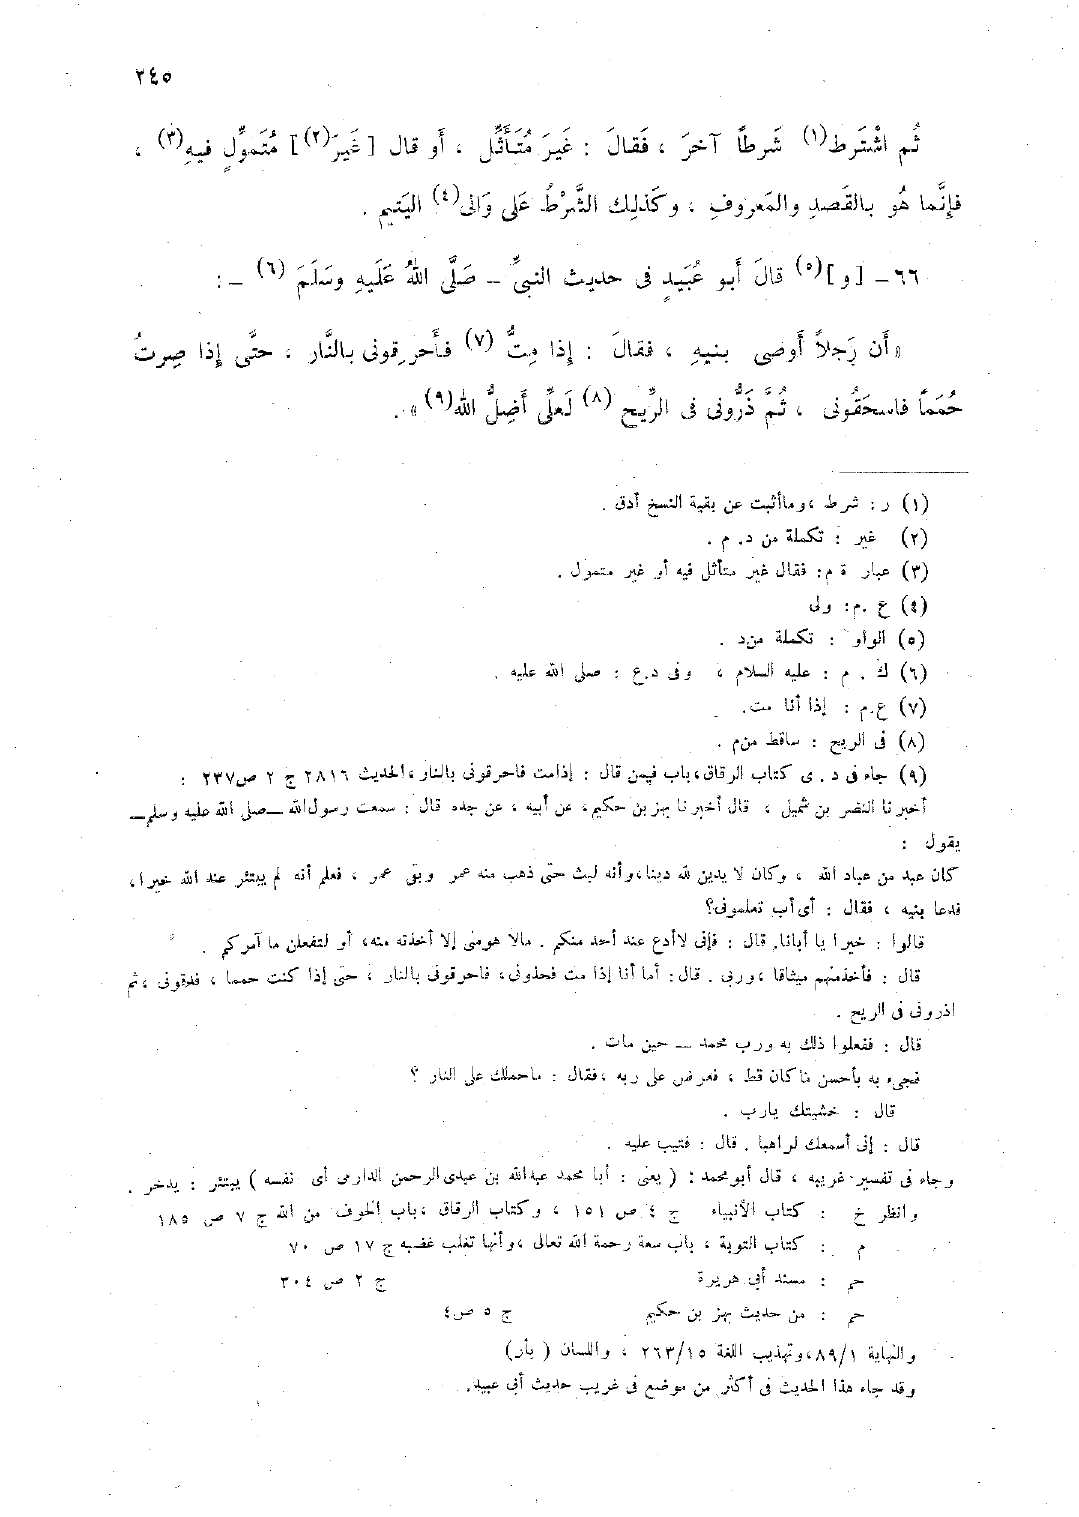 ٣٤٥
ثُم اشْتَرط(١) شَرطاً آخرَ ، فَقالَ : غَيرَ مُتَأَثِّل ، أَو قال [غَيرَ(٢)] مُتَموِّلٍ فيهِ(٣) ،
فإِنَّما هُو بالقَصدِ والمَعروفِ ، وكَذلِك الشَّرْطُ عَلى وَالى(٤) اليَتيم .
٦٦ – [و](٥) قالَ أَبو عُبَيدٍ فى حديث النبىِّ – صَلَّى اللهُ عَلَيهِ وسَلَمَ(٦) – :
« أَن رَجلاً أَوصى بنيهِ ، فقالَ : إِذا مِتُّ(٧) فأَحرِقونى بالنَّار ، حتَّى إِذا صِرتُ
حُمَماً فاسحَقُونى ، ثُمَّ ذَرُّونى فى الرِّيح(٨) لَعلِّى أَضِلُّ الله(٩) » .
(١) ر : شرط ، وماأثبت عن بقية النسخ أدق .
(٢) غير : تكملة من د. م .
(٣) عبار ة م: فقال غير متأثل فيه أو غير متمول .
(٤) ع .م: ولى
(٥) الواو : تكملة من د .
(٦) ك . م : عليه السلام ، وفى د.ع : صلى الله عليه .
(٧) ع.م : إذا أنا مت.
(٨) فى الريح : ساقط من م .
(٩) جاء فى د . ى كتاب الرقاق، باب فيمن قال : إذا مت فاحرقونى بالنار، الحديث ٢٨١٦ ج ٢ ص ٢٣٧ :
أخبرنا النضر بن شميل ، قال أخبرنا بهز بن حكيم، عن أبيه ، عن جده قال : سمعت رسول الله – صلى الله عليه وسلم –
يقول :
كان عبد من عباد الله ، وكان لا يدين لله دينا، وأنه لبث حتى ذهب منه عمر وبقى عمر ، فعلم أنه لم يبتئر عند الله خيرا،
فدعا بنيه ، فقال : أى أب تعلمونى؟
قالوا : خيرا يا أبانا. قال : فإنى لاأدع عند أحد منكم . مالا هومنى إلا أخذته منه، أو لتفعلن ما آمركم .
قال : فأخذمنهم ميثاقا ، وربى . قال: أما أنا إذا مت فخذونى، فاحرقونى بالنار ، حتى إذا كنت حمما ، فدقونى ، ثم
اذرونى فى الريح .
قال : ففعلوا ذلك به ورب محمد – حين مات .
فجىء به بأحسن ماكان قط ، فعرض على ربه ، فقال : ماحملك على النار ؟
قال : خشيتك يارب .
قال : إنى أسمعك لراهبا . قال : فتيب عليه .
وجاء فى تفسير غريبه ، قال أبومحمد : ( يعنى : أبا محمد عبدالله بن عبدى الرحمن الدارمى أى نفسه ) يبتئر : يدخر .
وانظر خ : كتاب الأنبياء ج ٤ ص ١٥١ ، وكتاب الرقاق ، باب الخوف من الله ج ٧ ص ١٨٥
م : كتاب التوبة ، باب سعة رحمة الله تعالى ، وأنها تغلب غضبه ج ١٧ ص ٧٠
حم : مسند أبى هريرة ج ٢ ص ٣٠٤
حم : من حديث بهز بن حكيم ج ٥ ص٤
والنهاية ٨٩/١، وتهذيب اللغة ٢٦٣/١٥ ، واللسان ( بأر)
وقد جاء هذا الحديث فى أكثر من موضع فى غريب حديث أبى عبيد.